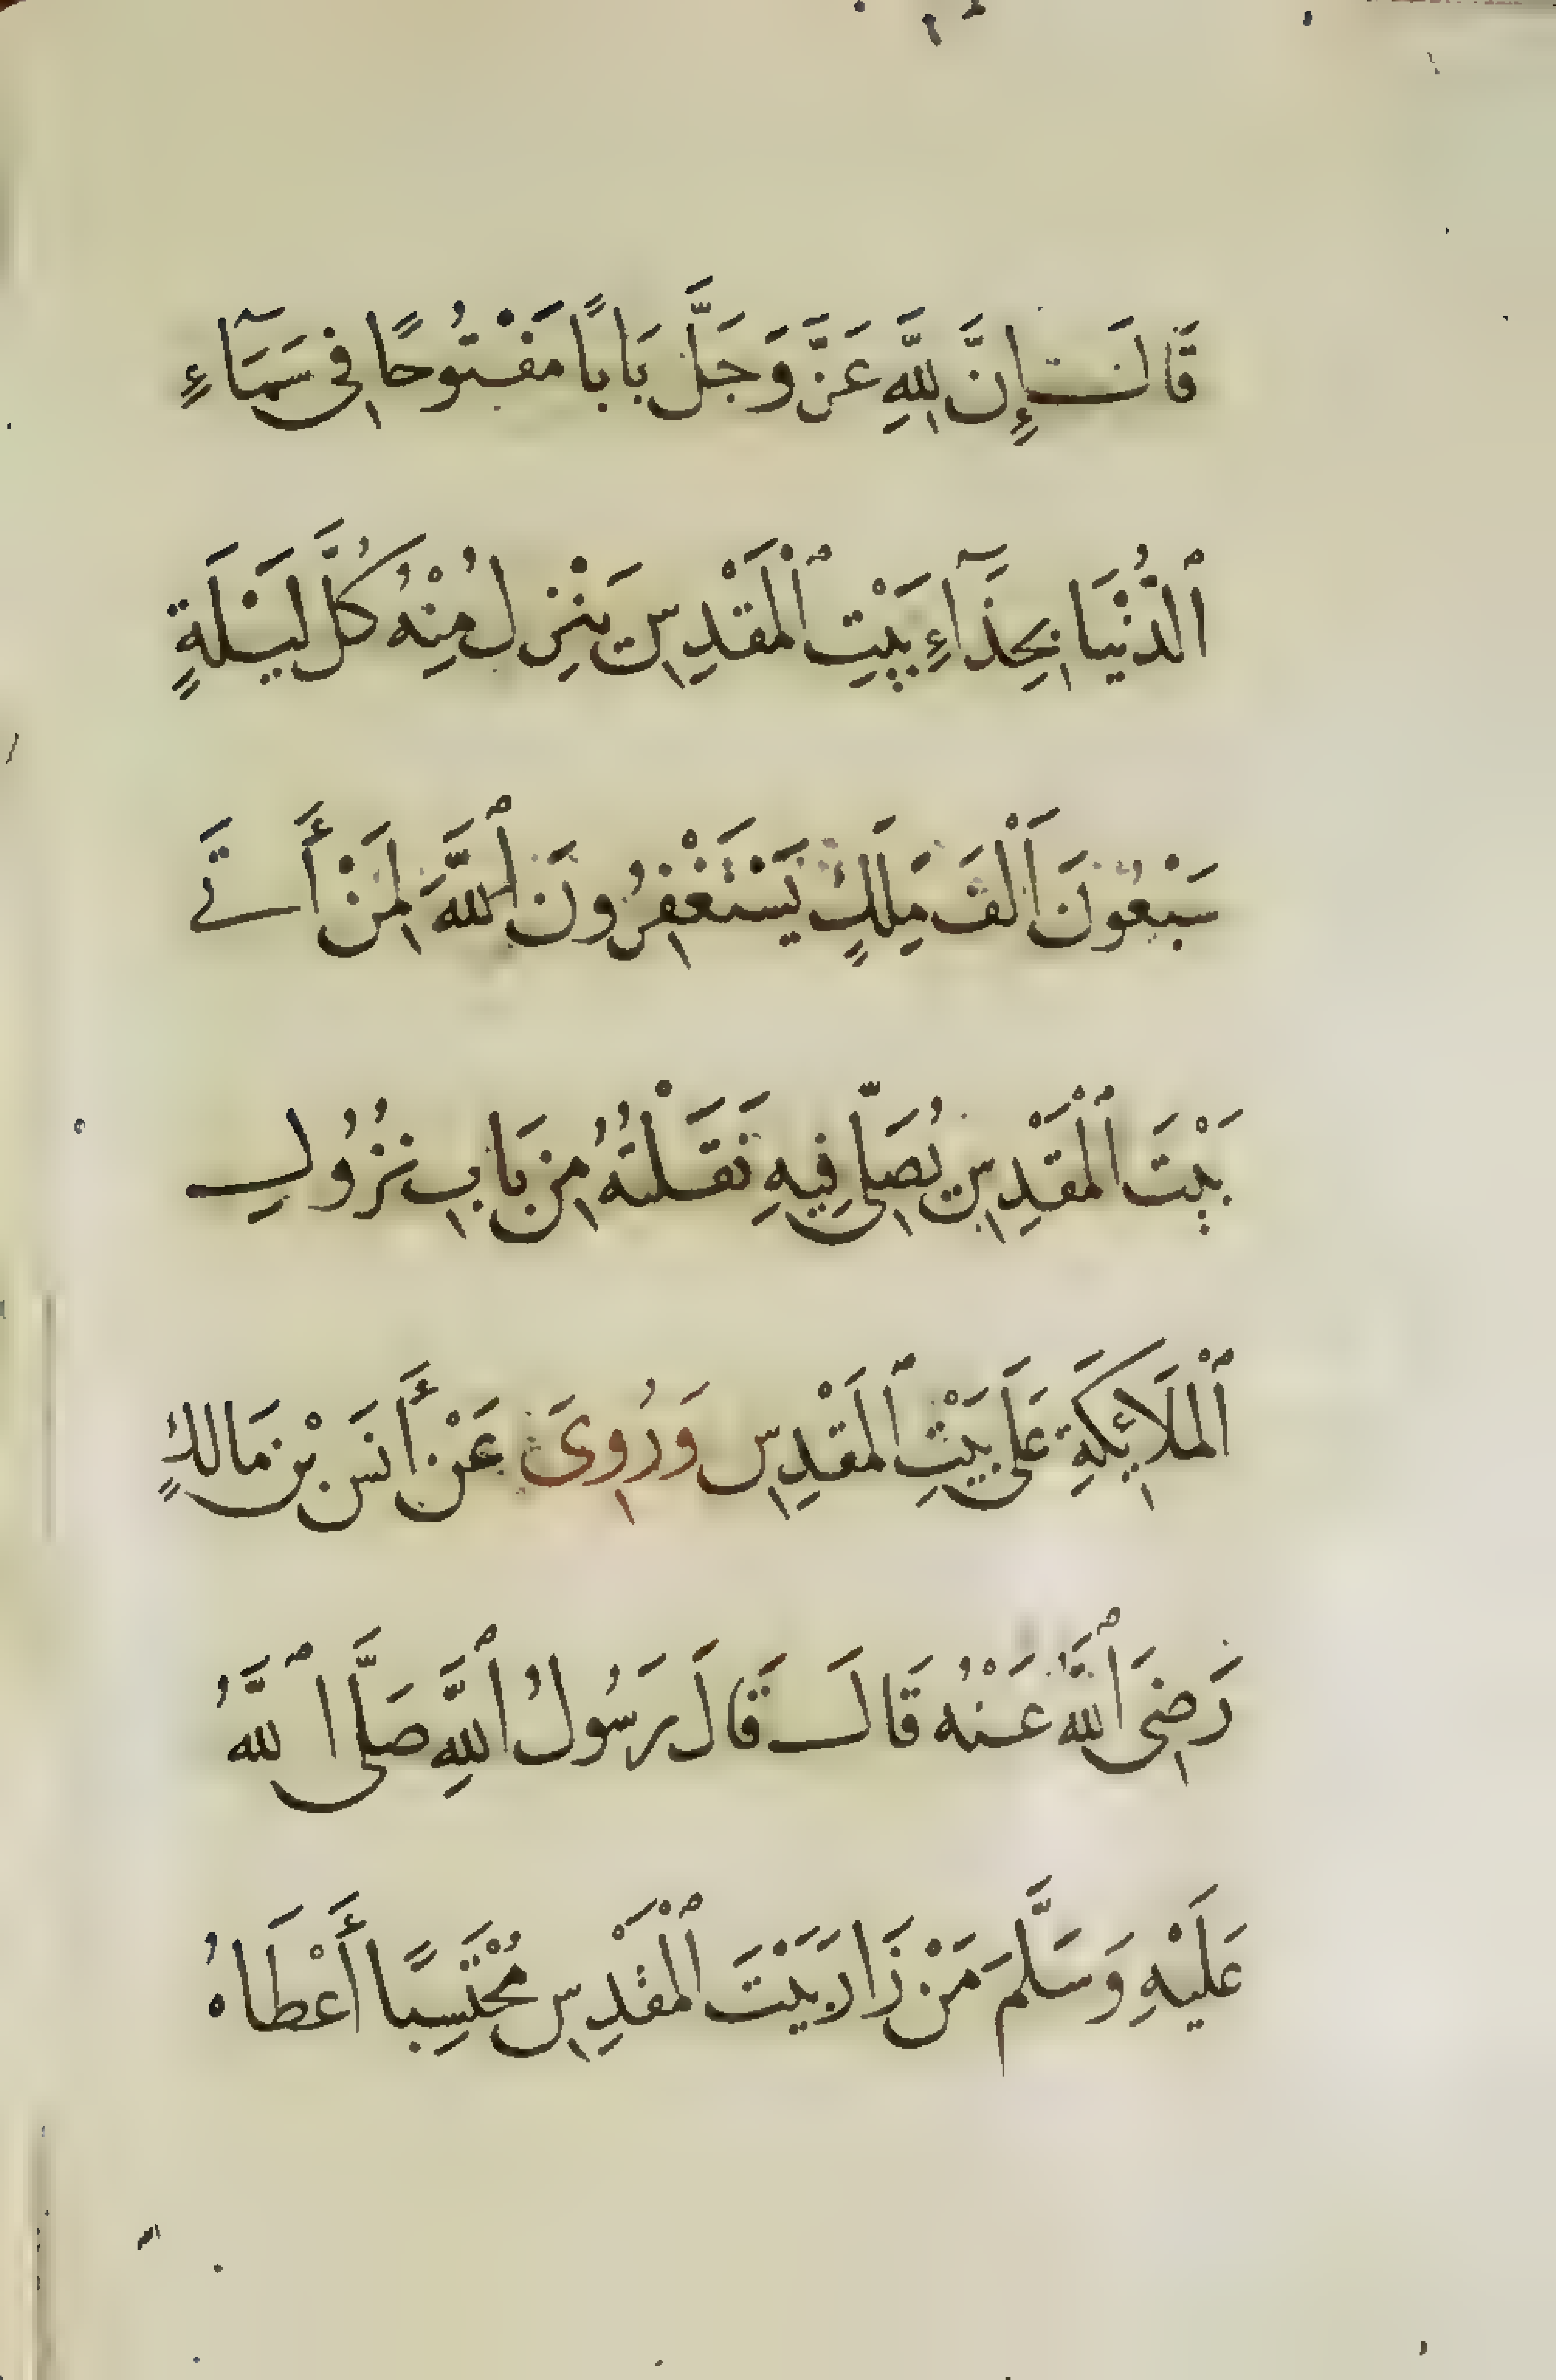 قَالَتْ إِنَّ لِلَّهِ عَزَّ وَجَلَّ بَابًا مَفْتُوحًا فِي سَمَآءِ
ٱلدُّنْيَا بِحِذَآءِ بَيْتِ ٱلْمَقْدِسِ يَنْزِلُ مِنْهُ كُلَّ لَيْلَةٍ
سَبْعُونَ أَلْفَ مَلَكٍ يَسْتَغْفِرُونَ ٱللَّهَ لِمَنْ أَتَى
بَيْتَ ٱلْمَقْدِسِ يُصَلِّي فِيهِ نَقَلْتُهُ مِنْ بَابِ نُزُولِ
ٱلْمَلَائِكَةِ عَلَى بَيْتِ ٱلْمَقْدِسِ وَرُوِيَ عَنْ أَنَسِ بْنِ مَالِكٍ
رَضِيَ ٱللَّهُ عَنْهُ قَالَ قَالَ رَسُولُ ٱللَّهِ صَلَّى ٱللَّهُ
عَلَيْهِ وَسَلَّمَ مَنْ زَارَ بَيْتَ ٱلْمَقْدِسِ مُحْتَسِبًا أَعْطَاهُ